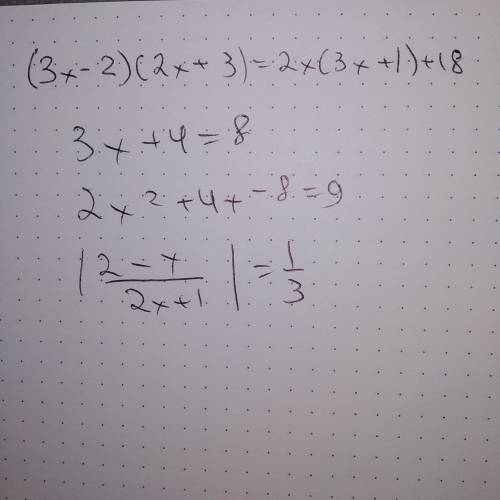 (3x-2)(2x+3)=2x(3x+1)+18
3x+4=8
2x²+4x-8=9
|2-x/2x+1|=1/3